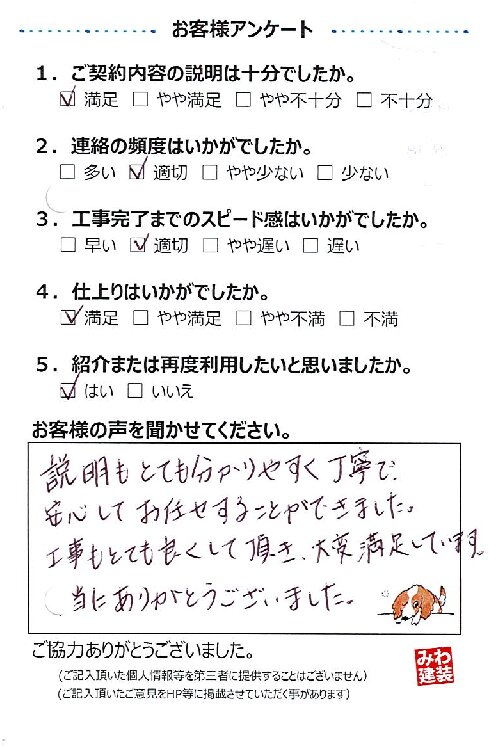 お客様アンケート
1．ご契約内容の説明は十分でしたか。
☑ 満足 □ やや満足 □ やや不十分 □ 不十分
2．連絡の頻度はいかがでしたか。
□ 多い ☑ 適切 □ やや少ない □ 少ない
3．工事完了までのスピード感はいかがでしたか。
□ 早い ☑ 適切 □ やや遅い □ 遅い
4．仕上りはいかがでしたか。
☑ 満足 □ やや満足 □ やや不満 □ 不満
5．紹介または再度利用したいと思いましたか。
☑ はい □ いいえ
お客様の声を聞かせてください。
説明もとても分かりやすく丁寧で、
安心してお任せすることができました。
工事もとても良くして頂き、大変満足しています。
当にありがとうございました。
ご協力ありがとうございました。
(ご記入頂いた個人情報等を第三者に提供することはございません)
(ご記入頂いたご意見をHP等に掲載させていただく事があります)
みわ
建装